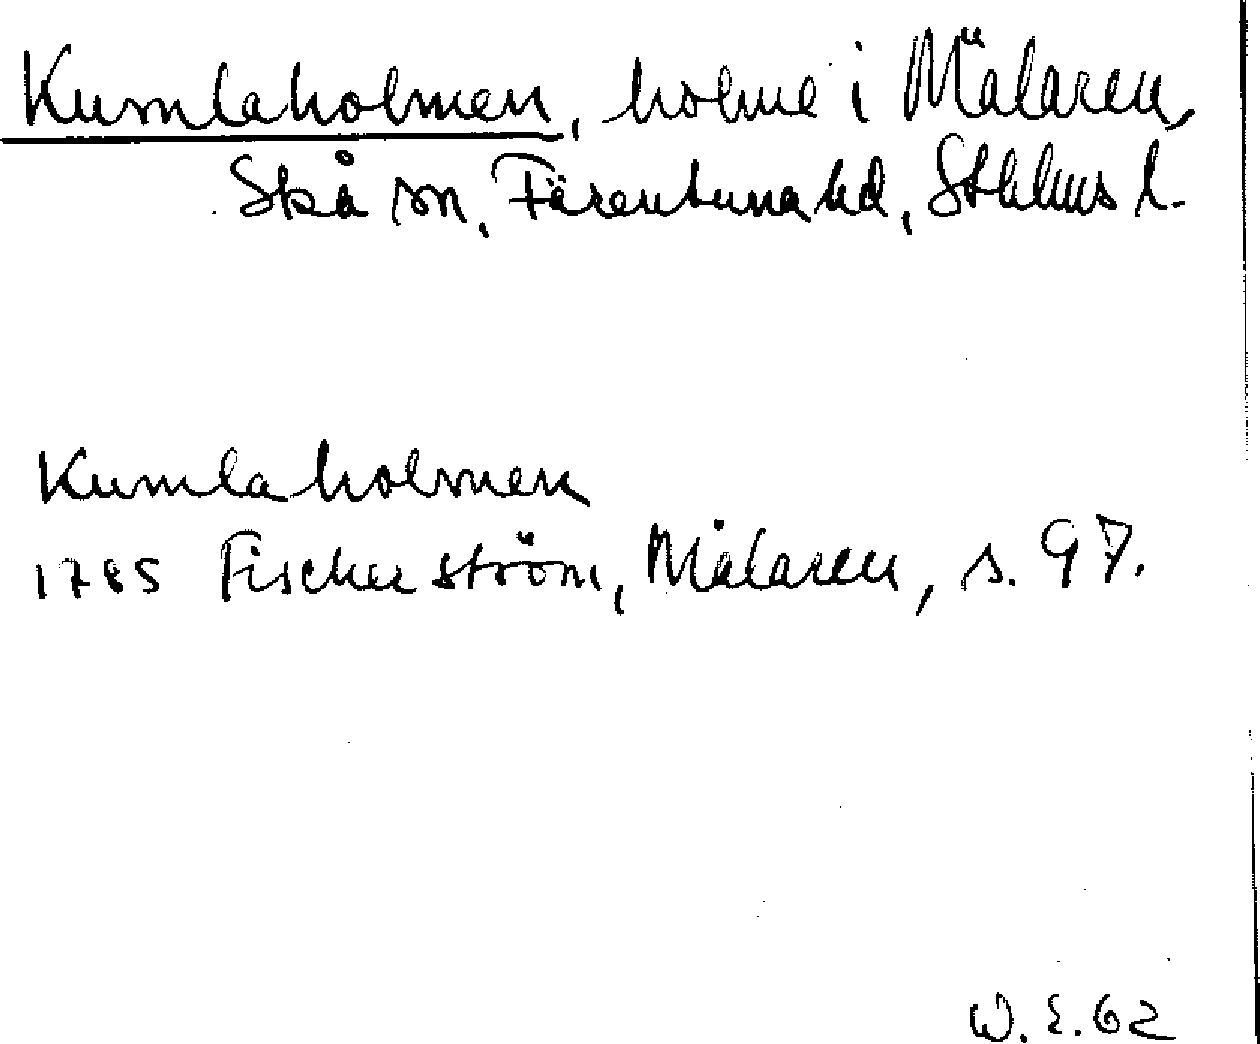 Kumlaholmen, holme i Mälaren,
Skå sn, Färentuna hd, Sthlms l.
Kumlaholmen
1785 Fischerström, Mälaren, s. 97.
W. E. 62